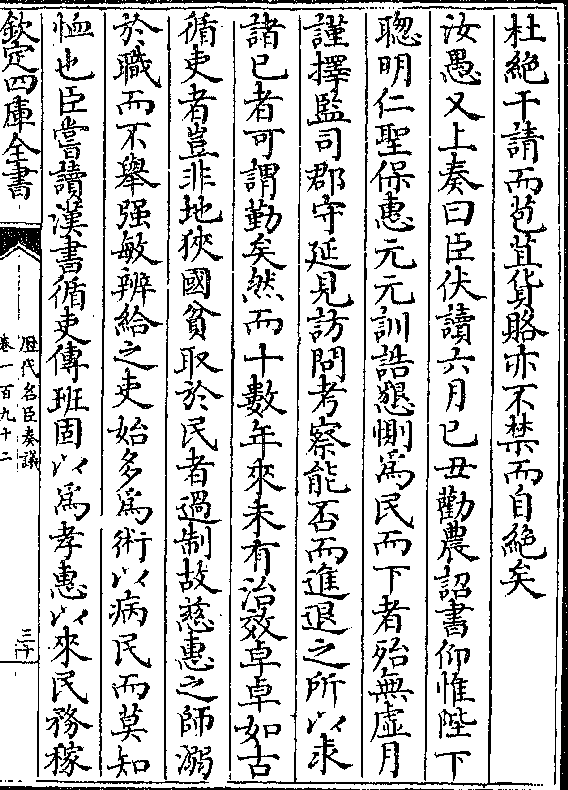 杜絶干請而苞苴貨賂亦不禁而自絶矣
汝愚又上奏曰臣伏讀六月己丑勸農詔書仰惟陛下
聰明仁聖保惠元元訓誥懇惻為民而下者殆無虚月
謹擇監司郡守延見訪問考察能否而進退之所以求
諸已者可謂勤矣然而十數年來未有治效卓卓如古
循吏者豈非地狹國貧取於民者過制故慈惠之師溺
於職而不舉强敏辨給之吏始多為術以病民而莫知
恤也臣嘗讀漢書循吏傳班固以為孝惠以來民務稼
欽定四庫全書
歴代名臣奏議
卷一百九十二
三十